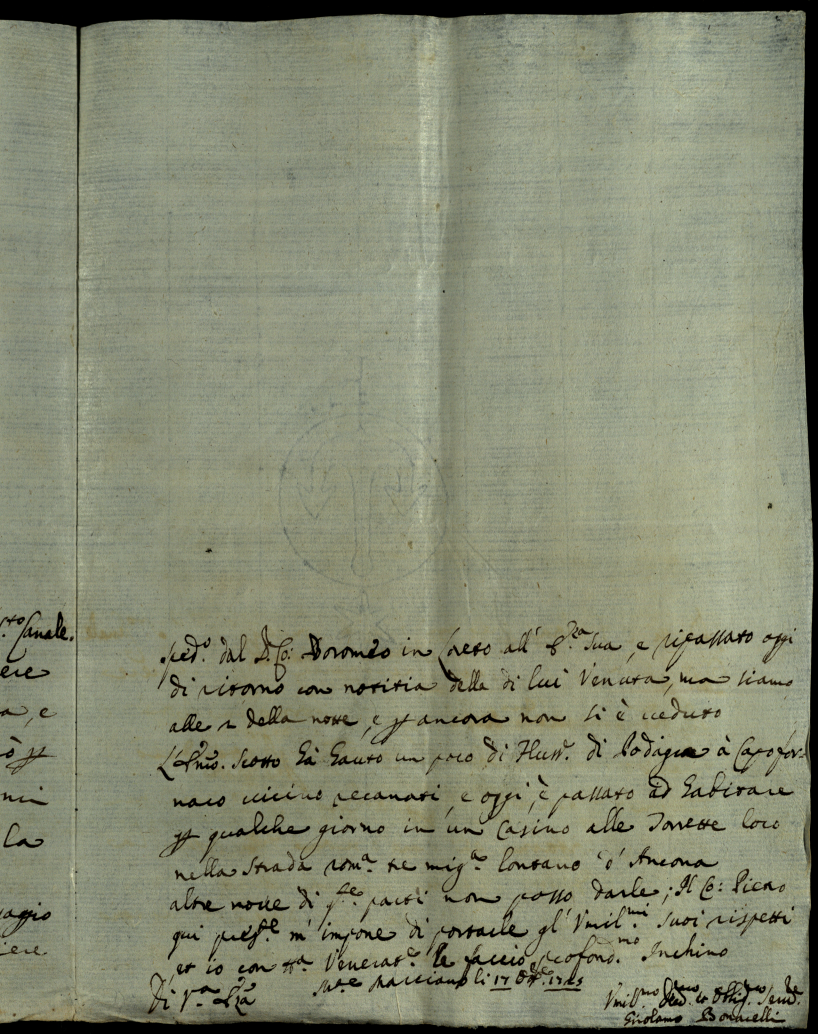 Canale.
ere
a, e
ò p
nui
la
aggio
iere
sped.o dal D. Co: Boromeo in Loreto all' E.za Sua, e ripassato oggi
di ritorno con notitia della di lui Venuta, ma siamo
alle 2 della notte, e p ancora non si è ueduto
Scotto hà hauto un poco di fluss.e di Podagra à Capofor=
naco uicino recanati, e oggi, è passato ad habitare
p qualche giorno in un Casino alle Torrette loco
nella strada rom.a tre mig.a lontano d' Ancona
altre noue di q.te parti non posso darle; Il Co: Piero
qui pres.te m' impone di portarle gl' Vmil.mi suoi rispetti
et io con tt.a Venerat.e le faccio profond.mo Inchino
Di V.a E.za
li 17 Ott.e 1725
Vmil.mo Deu.mo et Obblig.mo Seru.e
Girolamo Bonacelli